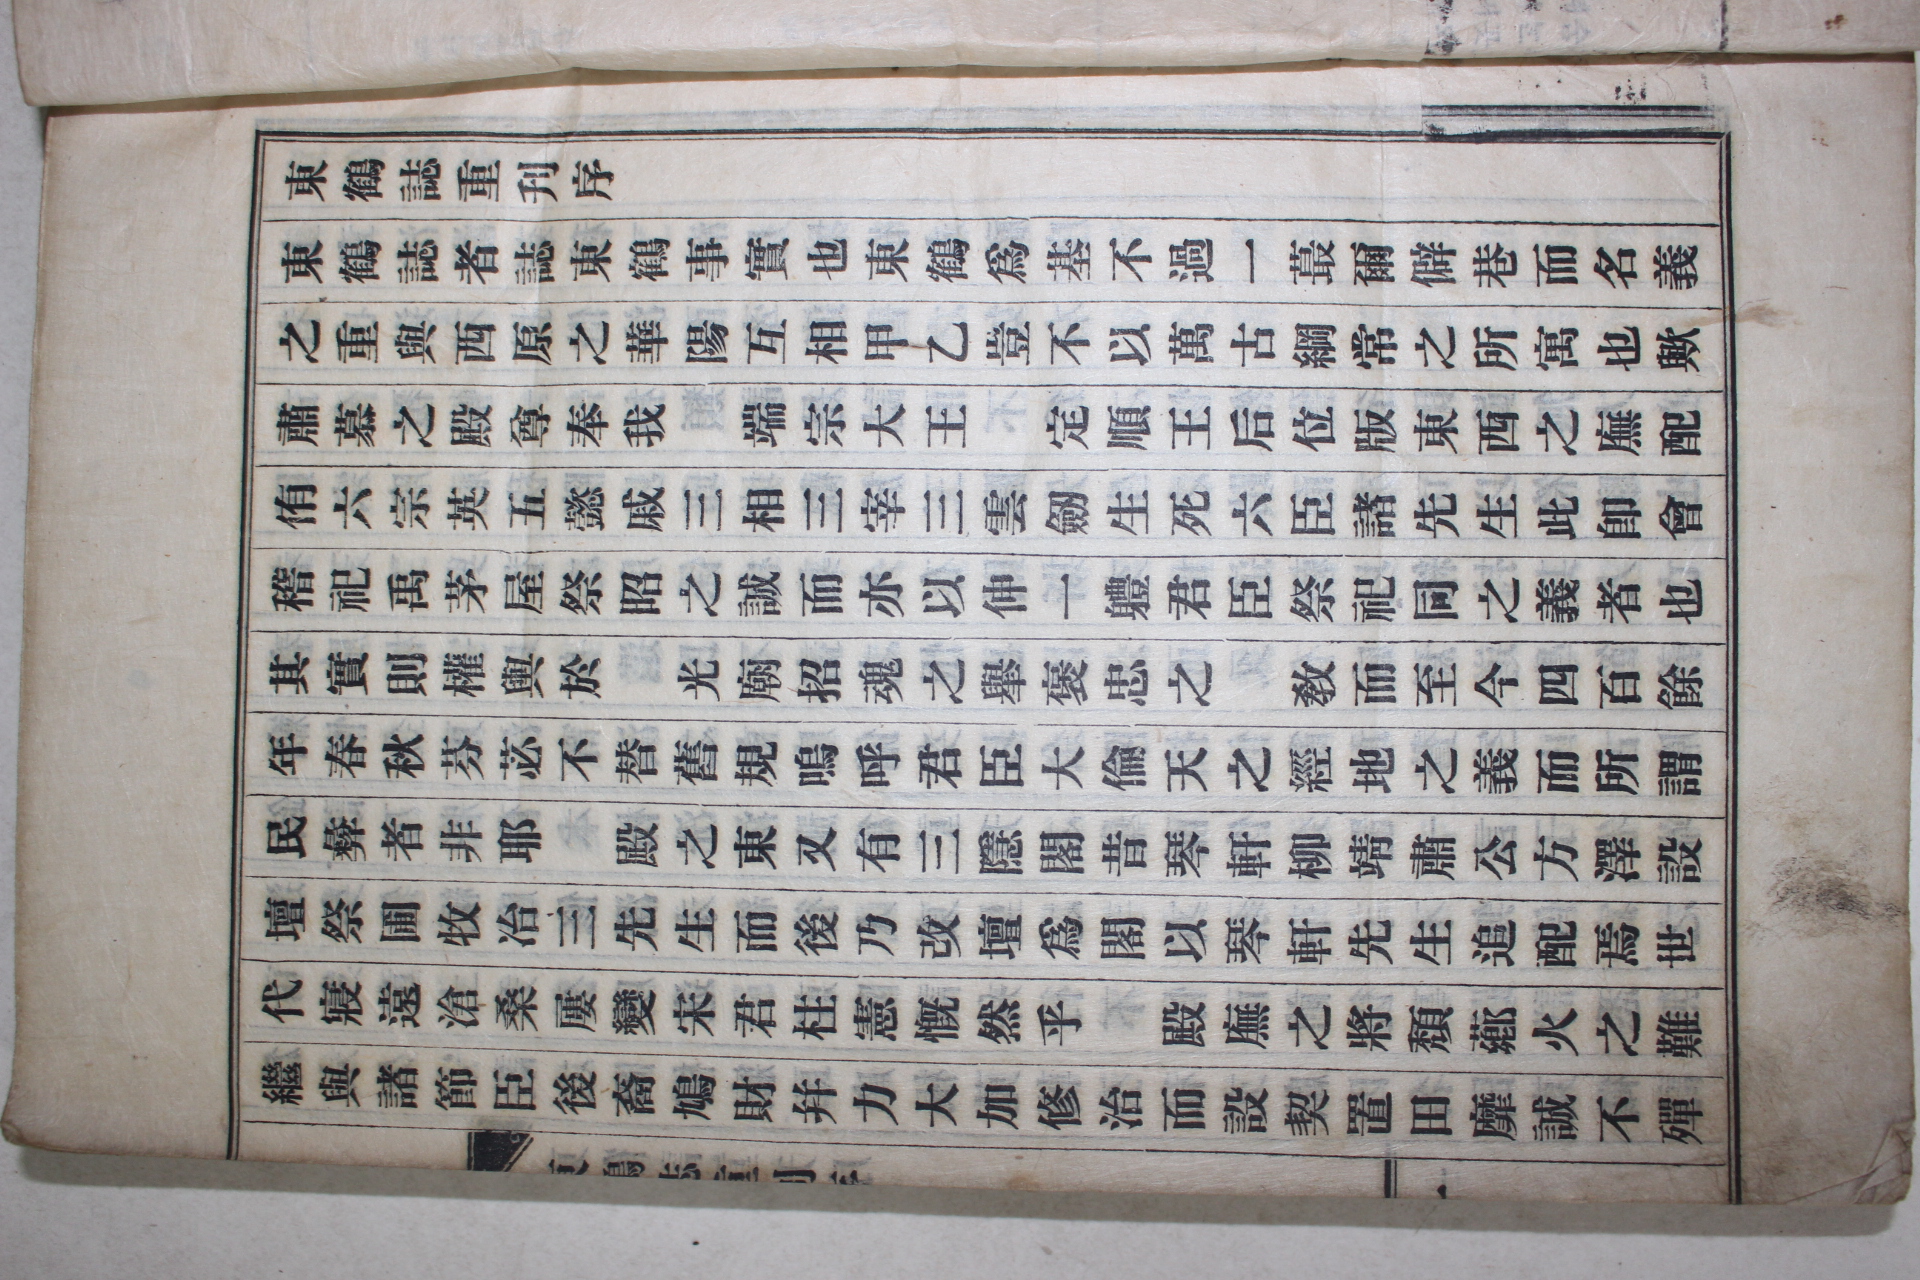 東鶴誌重刊序
東鶴誌者誌東鶴事實也東鶴爲基不過一蕞爾僻巷而名義
之重與西原之華陽互相甲乙豈不以萬古綱常之所寓也歟
肅慕之殿尊奉我　端宗大王　定順王后位版東西之廡配
侑六宗英五懿戚三相三宰三雲劒生死六臣諸先生此卽會
稽祀禹茅屋祭昭之誠而亦以伸一軆君臣祭祀同之義者也
其實則權輿於　光廟招魂之舉褒忠之　敎而至今四百餘
年春秋芬苾不替舊規嗚呼君臣大倫天之經地之義而所謂
民彜者非耶　殿之東又有三隱閣昔琴軒柳靖肅公方澤設
壇祭圃牧冶三先生而後乃改壇爲閣以琴軒先生追配焉世
代寢遠滄桑屢變宋君柱憲慨然乎　殿廡之將頹薌火之難
繼與諸節臣後裔鳩財幷力大加修治而設契置田靡誠不殫
東鶴誌重刊序
一